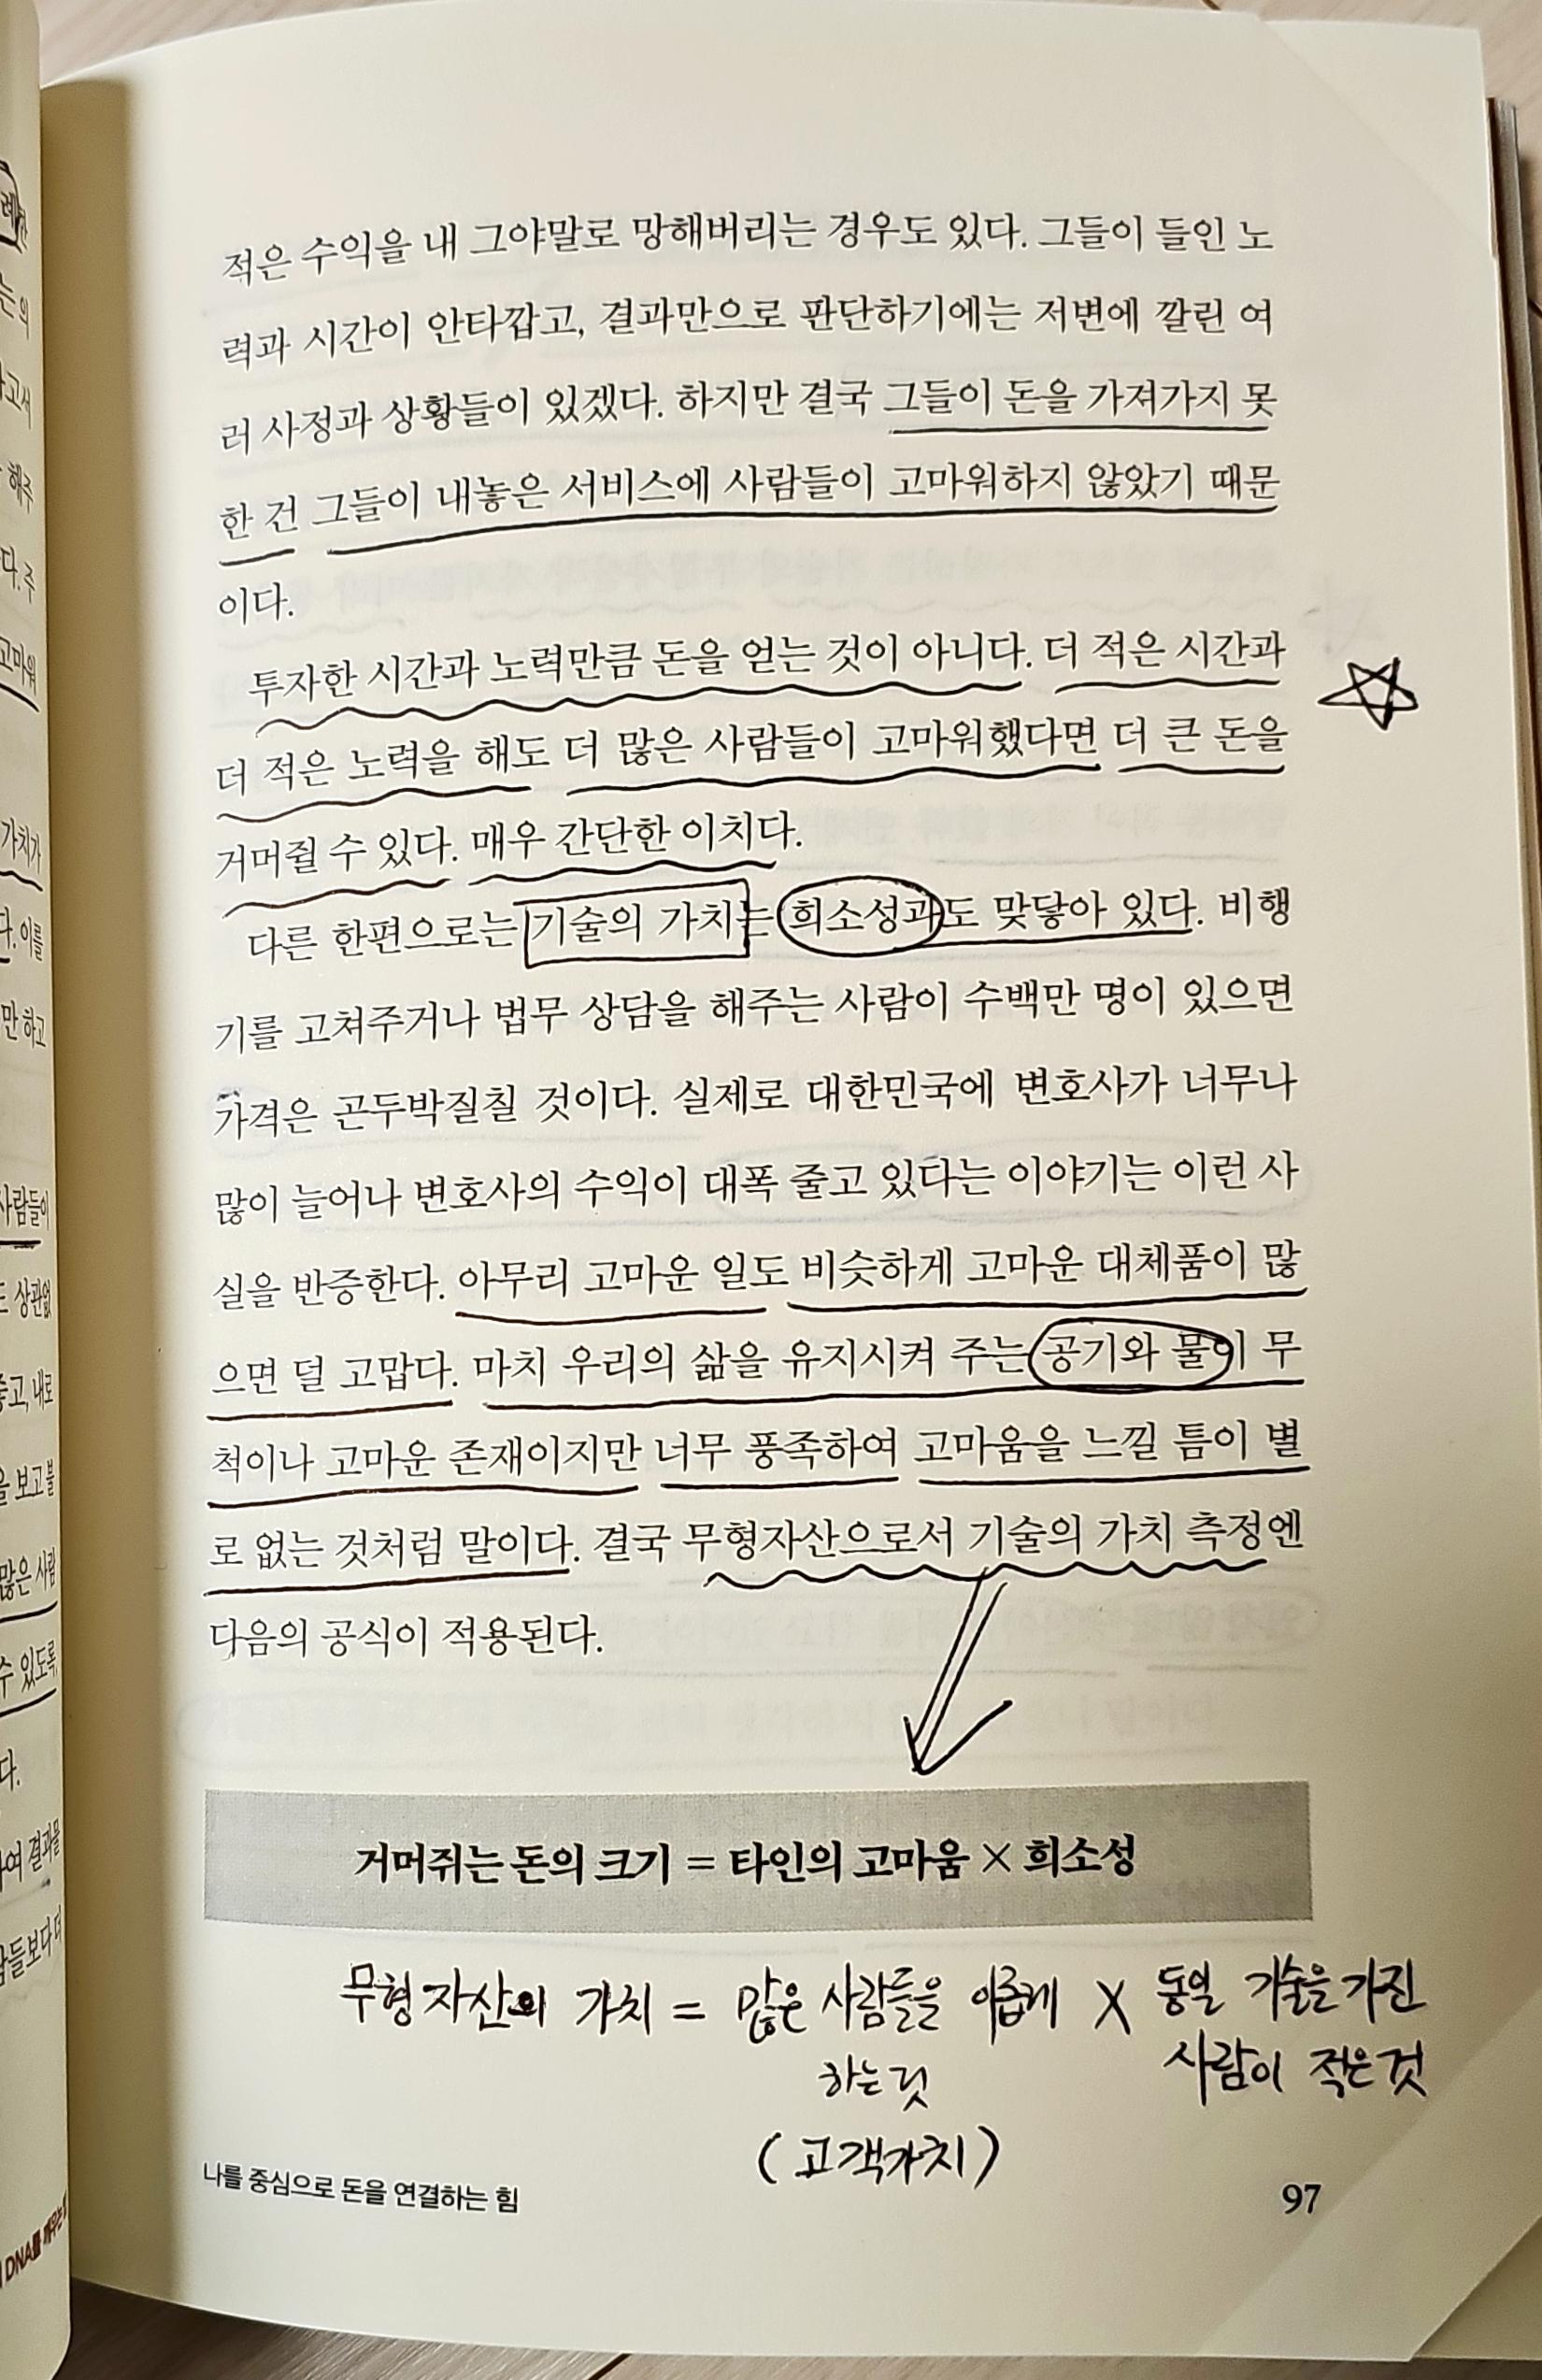 적은 수익을 내 그야말로 망해버리는 경우도 있다. 그들이 들인 노
력과 시간이 안타깝고, 결과만으로 판단하기에는 저변에 깔린 여
러 사정과 상황들이 있겠다. 하지만 결국 그들이 돈을 가져가지 못
한 건 그들이 내놓은 서비스에 사람들이 고마워하지 않았기 때문
이다.
투자한 시간과 노력만큼 돈을 얻는 것이 아니다. 더 적은 시간과
더 적은 노력을 해도 더 많은 사람들이 고마워했다면 더 큰 돈을
거머쥘 수 있다. 매우 간단한 이치다.
다른 한편으로는 기술의 가치는 희소성과도 맞닿아 있다. 비행
기를 고쳐주거나 법무 상담을 해주는 사람이 수백만 명이 있으면
가격은 곤두박질칠 것이다. 실제로 대한민국에 변호사가 너무나
많이 늘어나 변호사의 수익이 대폭 줄고 있다는 이야기는 이런 사
실을 반증한다. 아무리 고마운 일도 비슷하게 고마운 대체품이 많
으면 덜 고맙다. 마치 우리의 삶을 유지시켜 주는 공기와 물이 무
척이나 고마운 존재이지만 너무 풍족하여 고마움을 느낄 틈이 별
로 없는 것처럼 말이다. 결국 무형자산으로서 기술의 가치 측정엔
다음의 공식이 적용된다.
거머쥐는 돈의 크기 = 타인의 고마움 × 희소성
무형자산의 가치 = 많은 사람들을 이롭게 × 동일 기술을 가진
하는것 사람이 적은것
(고객가치)
나를 중심으로 돈을 연결하는 힘 97
레
는 의
고서
해주
다. 주
고마워
가치가
다. 이를
만 하고
사람들이
도 상관없
좋고, 내로
을 보고 불
많은 사람
수 있도록
다.
여 결과물
람들보다 더
DNA를 깨우는